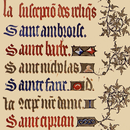 la suscepcõ des reliq̃s
Saint ambroise.
Sainte barbe.
Saint nicholas
Sainte fare.
la 9cepc̃ nr̃e dame
Saint ciprian